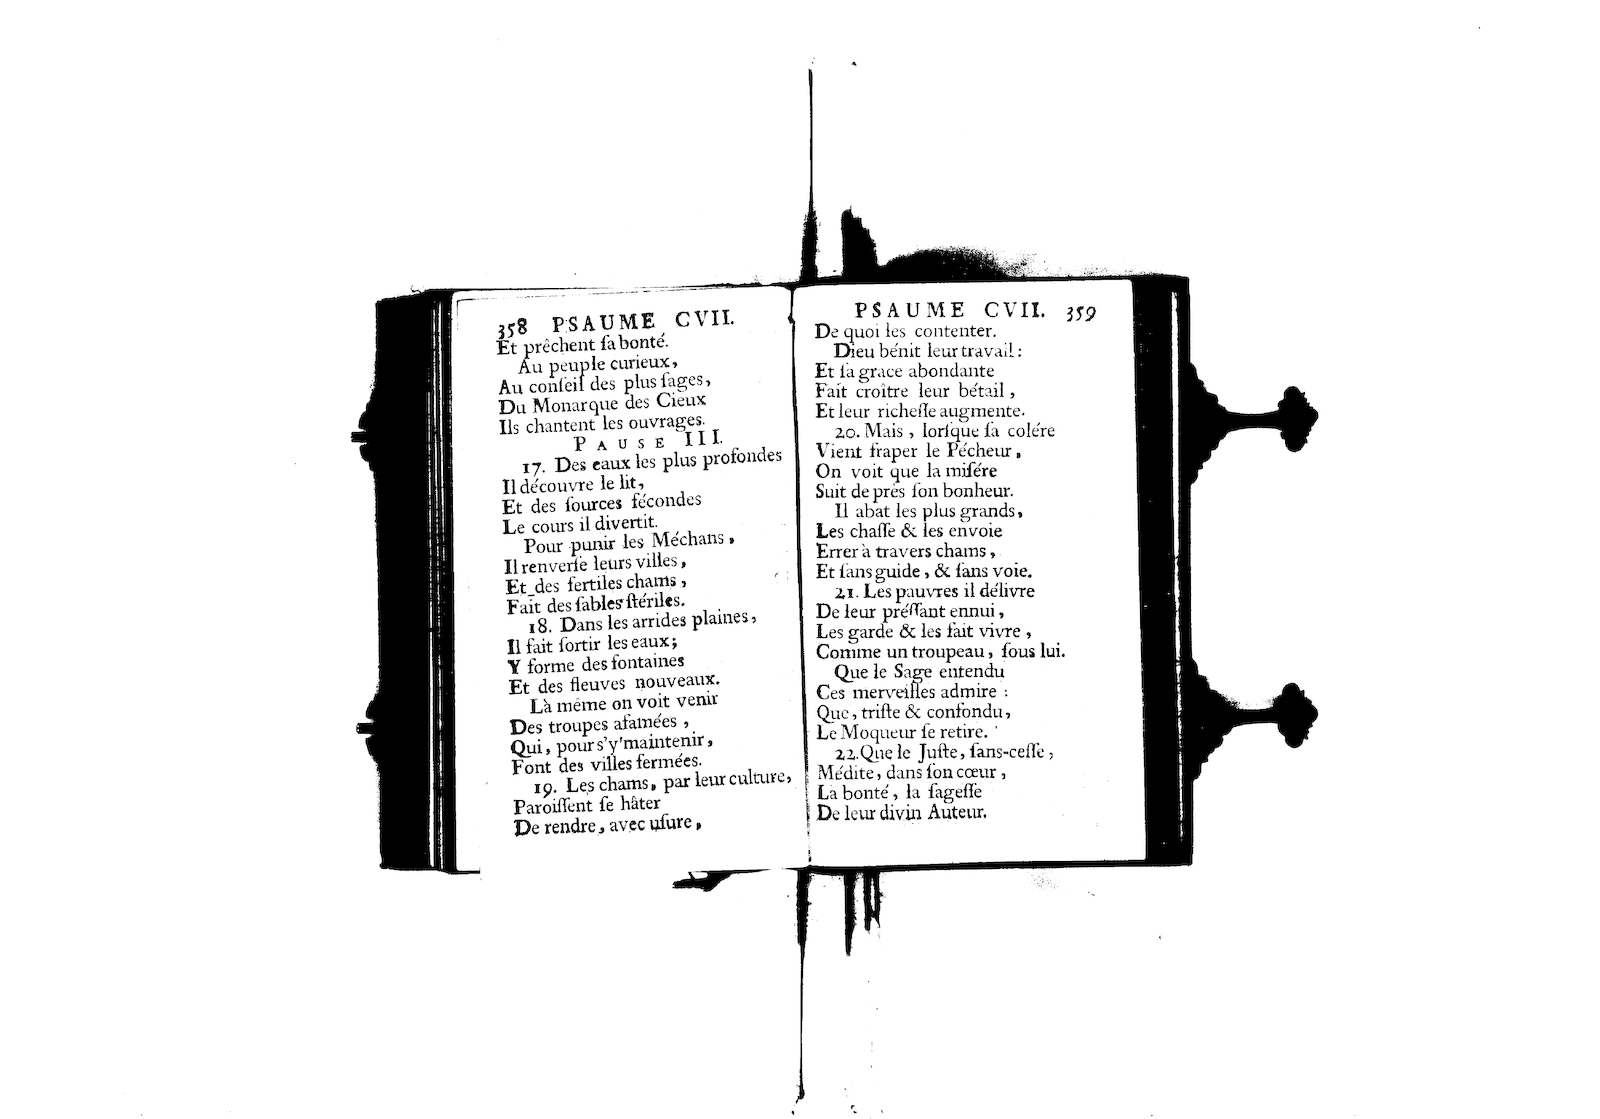 358 PSAUME CVII.
Et prêchent ſa bonté.
Au peuple curieux,
Au conſeil des plus ſages,
Du Monarque des Cieux
Ils chantent les ouvrages.
PAUSE III.
17. Des eaux les plus profondes
Il découvre le lit,
Et des ſources fécondes
Le cours il divertit.
Pour punir les Méchans,
Il renverſe leurs villes,
Et des fertiles chams,
Fait des ſables ſtériles.
18. Dans les arrides plaines,
Il fait ſortir les eaux;
Y forme des fontaines
Et des fleuves nouveaux.
Là même on voit venir
Des troupes afamées,
Qui, pour s'y maintenir,
Font des villes fermées.
19. Les chams, par leur culture,
Paroiſſent ſe hâter
De rendre, avec uſure,
PSAUME CVII. 359
De quoi les contenter.
Dieu bénit leur travail:
Et ſa grace abondante
Fait croître leur bétail,
Et leur richeſſe augmente.
20. Mais, lorſque ſa colére
Vient fraper le Pécheur,
On voit que la miſére
Suit de près ſon bonheur.
Il abat les plus grands,
Les chaſſe & les envoie
Errer à travers chams,
Et ſans guide, & ſans voie.
21. Les pauvres il délivre
De leur préſſant ennui,
Les garde & les fait vivre,
Comme un troupeau, ſous lui.
Que le Sage entendu
Ces merveilles admire:
Que, triſte & confondu,
Le Moqueur ſe retire.
22. Que le Juſte, ſans-ceſſe,
Médite, dans ſon cœur,
La bonté, la ſageſſe
De leur divin Auteur.